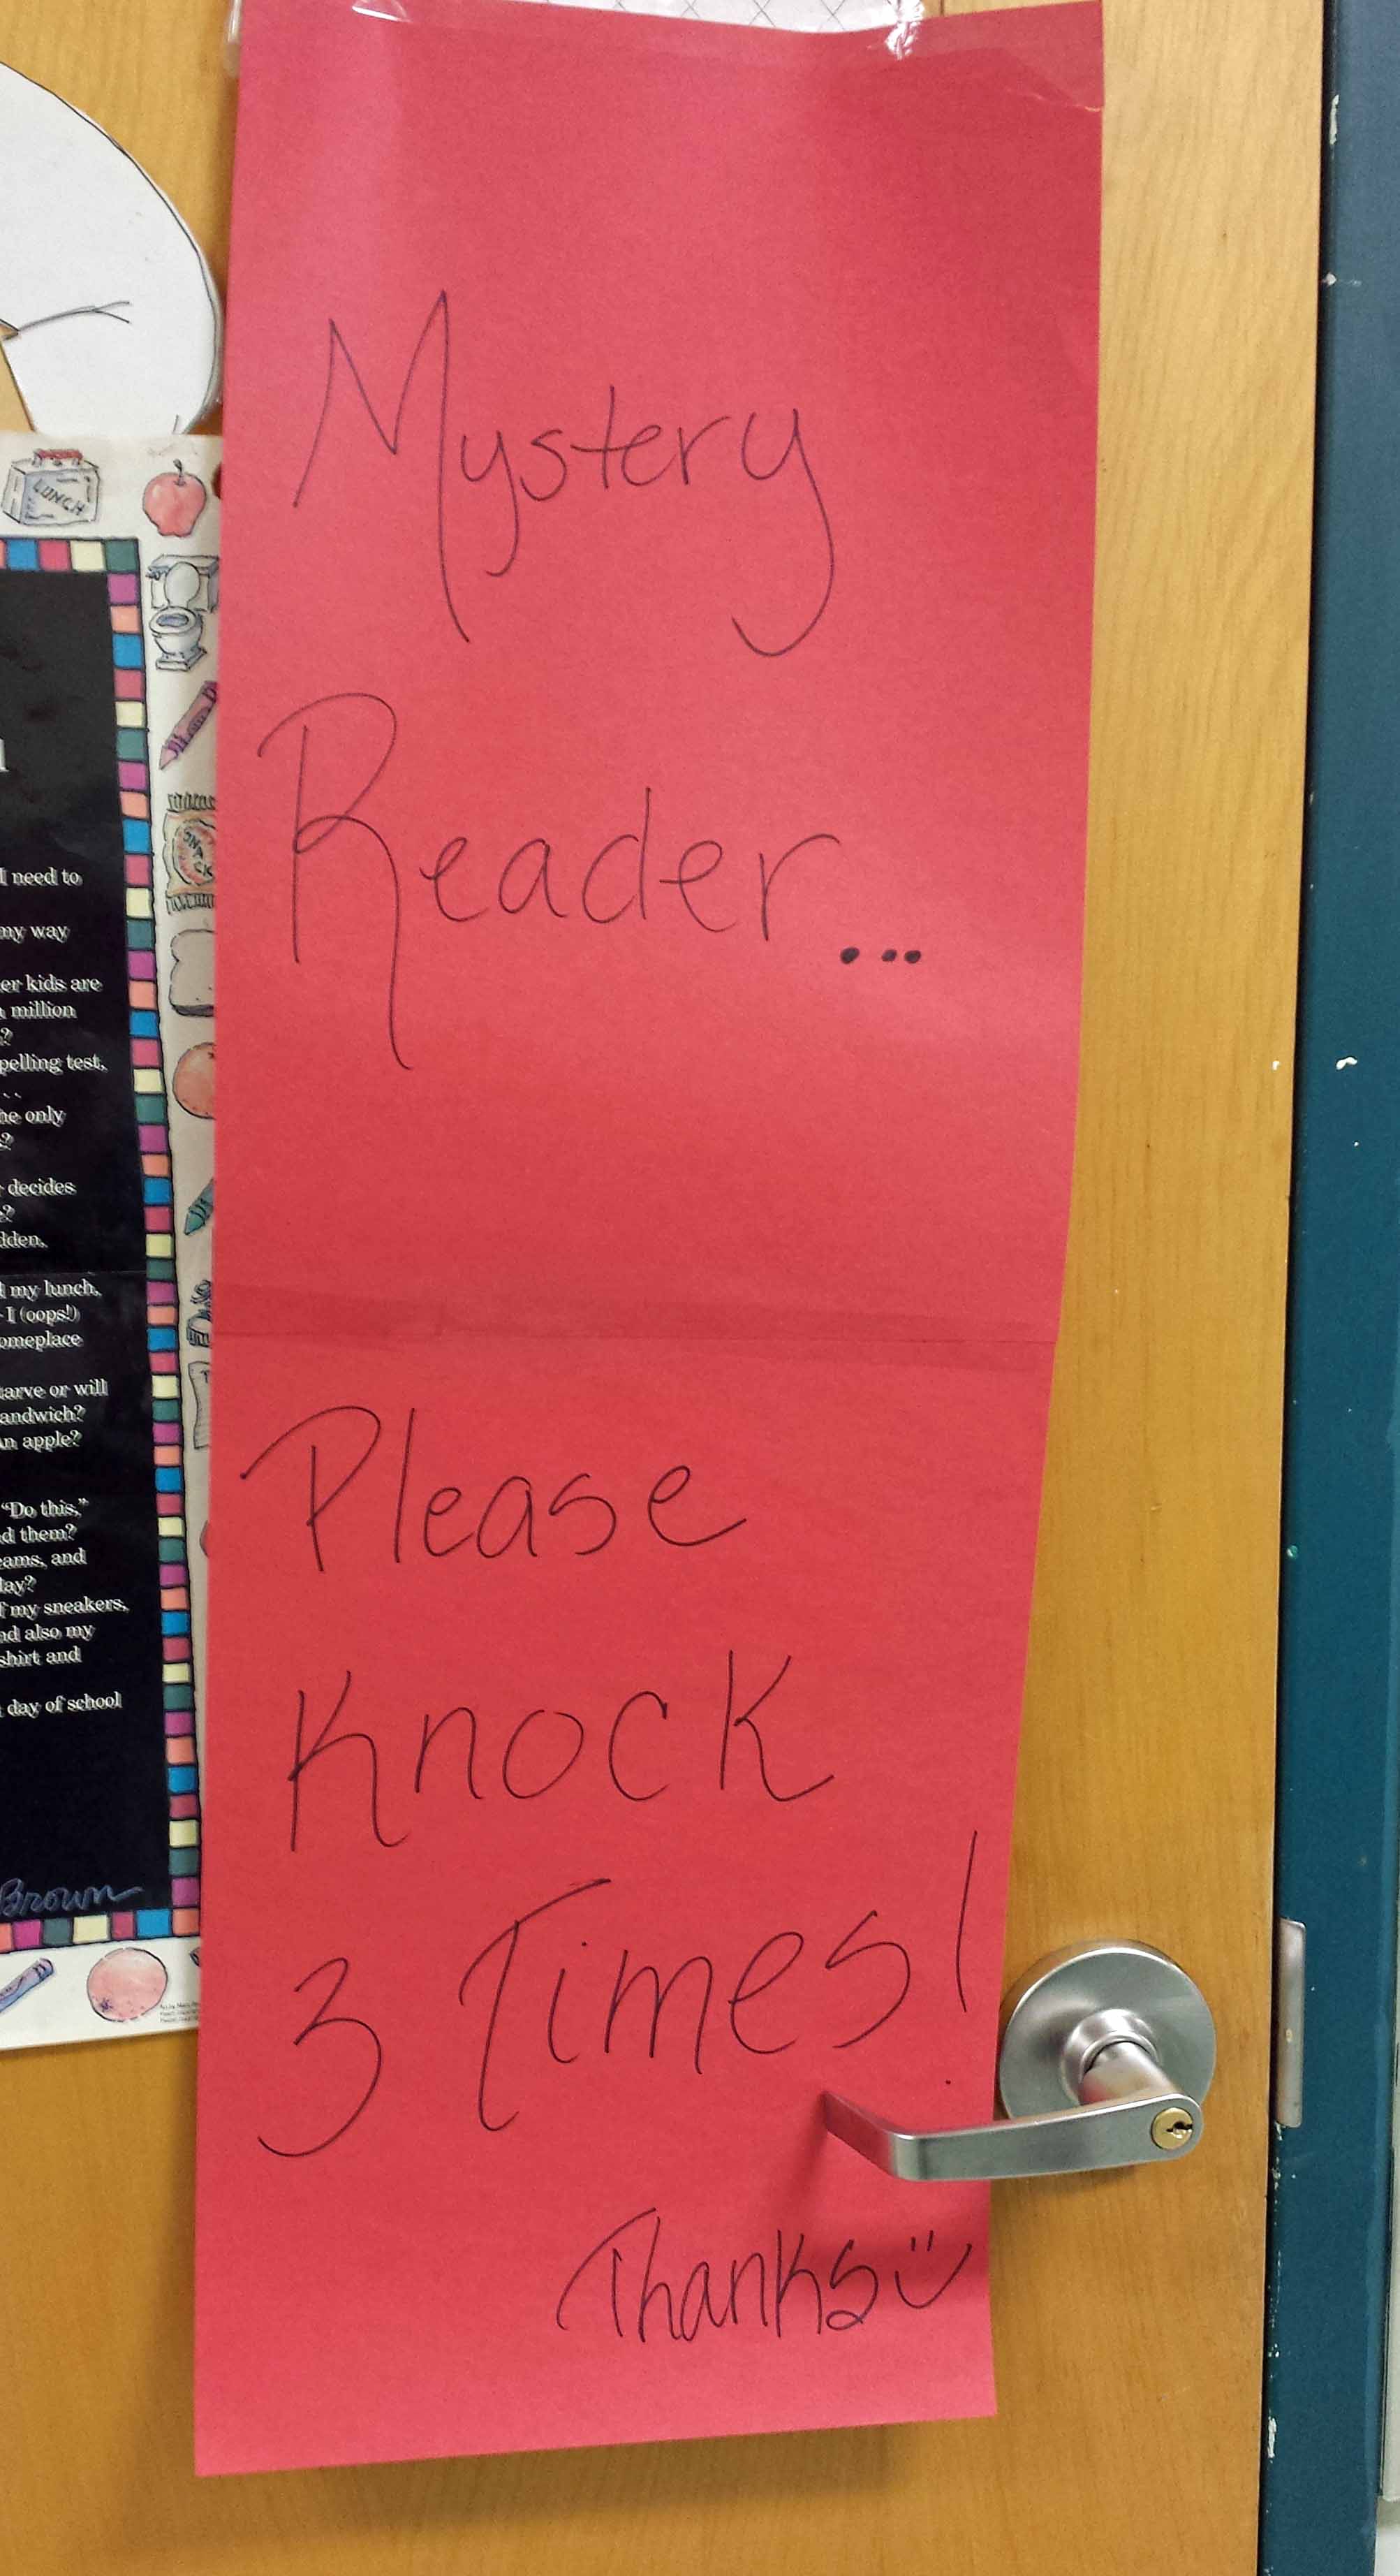 Mystery
Reader...
Please
Knock
3 Times!
Thanks
LUNCH
SNACK
I need to
my way
er kids are
million
?
pelling test,
. .
he only
?
decides
?
dden.
my lunch,
I (oops!)
omeplace
arve or will
andwich?
n apple?
"Do this,"
d them?
eams, and
lay?
f my sneakers,
nd also my
shirt and
day of school
Brown